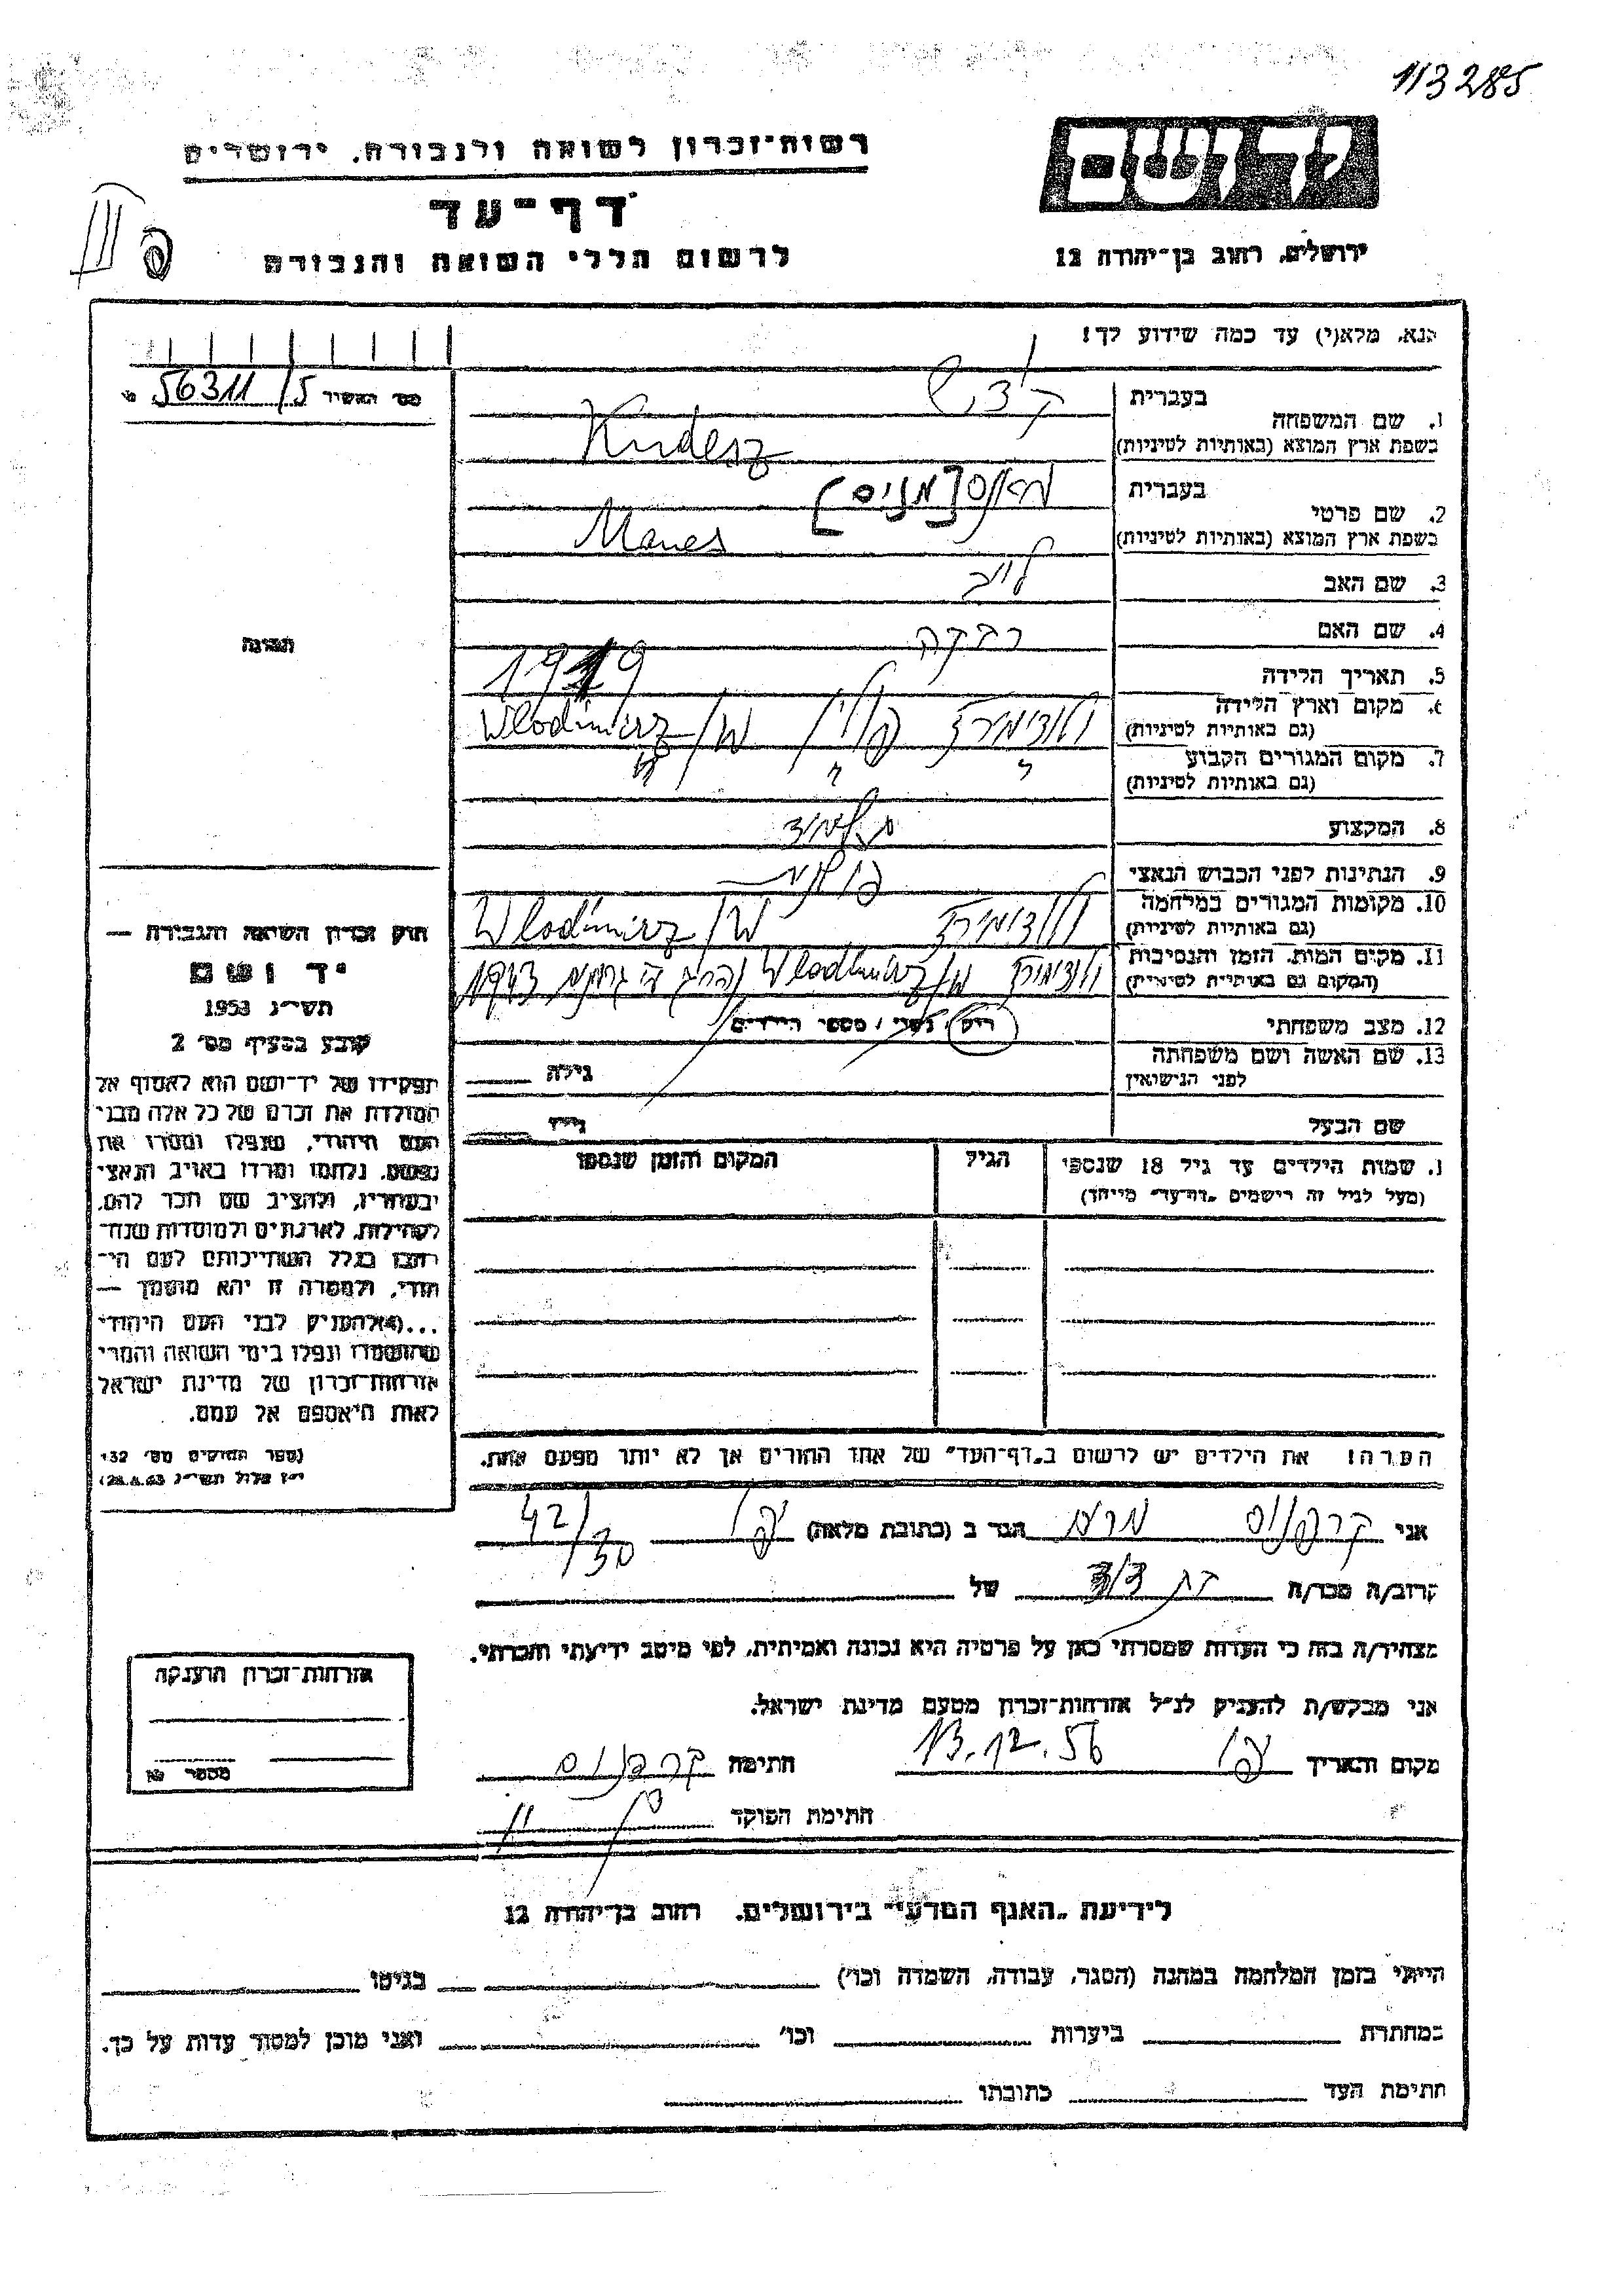 113285
רשות־זכרון לשואה ולגבורה. ירושלים
דף־עד
לרשום חללי השואה והגבורה
יד ושם
ירושלים, רחוב בן־יהודה 12
נא, מלא(י) עד כמה שידוע לך!
מס׳ האשיד 56311/5
1. שם המשפחה
בעברית קודש
בשפת ארץ המוצא (באותיות לטיניות) Kudesz
2. שם פרטי
בעברית מאנס [מניס]
בשפת ארץ המוצא (באותיות לטיניות) Manes
3. שם האב לייב
4. שם האם רבקה
5. תאריך הלידה 1919
6. מקום וארץ הלידה
(גם באותיות לטיניות) ולודימירץ פולין Wlodimirz /W
7. מקום המגורים הקבוע
(גם באותיות לטיניות)
8. המקצוע
9. הנתינות לפני הכבוש הנאצי פולנית
10. מקומות המגורים במלחמה
(גם באותיות לטיניות) ולודימירץ Wlodimirz /W
11. מקום המות, הזמן והנסיבות
(המקום גם באותיות לטיניות) ולודימירץ Wlodimirz 1943
12. מצב משפחתי רווק / נשוי / מספר הילדים
13. שם האשה ושם משפחתה
לפני הנישואין
גילה
שם הבעל
גילו
שמות הילדים עד גיל 18 שנספו
(מעל לגיל זה רישמים "דף־עד" מייחד)
הגיל
המקום והזמן שנספו
הערה! את הילדים יש לרשום ב"דף־העד" של אחד ההורים אך לא יותר מפעם אחת.
תמונה
חוק זכרון השואה והגבורה —
יד ושם
תשי״ג 1953
קובע בסעיף מס׳ 2
תפקידו של יד־ושם הוא לאסוף אל
המולדת את זכרם של כל אלה מבני
העם היהודי, שנפלו ומסרו את
נפשם, נלחמו ומרדו באויב הנאצי
ובעוזריו, ולהציב שם וזכר להם,
לקהילות, לארגונים ולמוסדות שנח־
רבו בגלל השתייכותם לעם הי־
הודי, ולמטרה זו יהא מוסמך —
...(4) להעניק לבני העם היהודי
שהושמדו ונפלו בימי השואה והמרי
אזרחות־זכרון של מדינת ישראל
לאות היאספם אל עמם.
(ספר החוקים מס׳ 132
י״ז אלול תשי״ג 28.8.53)
אני קרפנוס הגר ב (כתובת מלאה) 42/30
קרוב/ה מכר/ה בת דוד של
מצהיר/ה בזה כי העדות שמסרתי כאן על פרטיה היא נכונה ואמיתית, לפי מיטב ידיעתי והכרתי.
אני מבקש/ת להעניק לנ״ל אזרחות־זכרון מטעם מדינת ישראל.
מקום ותאריך 13.12.56 חתימה קרפנוס
חתימת הפוקד
אזרחות־זכרון הוענקה
מספר
לידיעת "האגף המדעי" בירושלים. רחוב בן־יהודה 12
הייתי בזמן המלחמה במחנה (הסגר, עבודה, השמדה וכו׳) בגיטו
במחתרת ביערות וכו׳ ואני מוכן למסור עדות על כך.
חתימת העד כתובתו